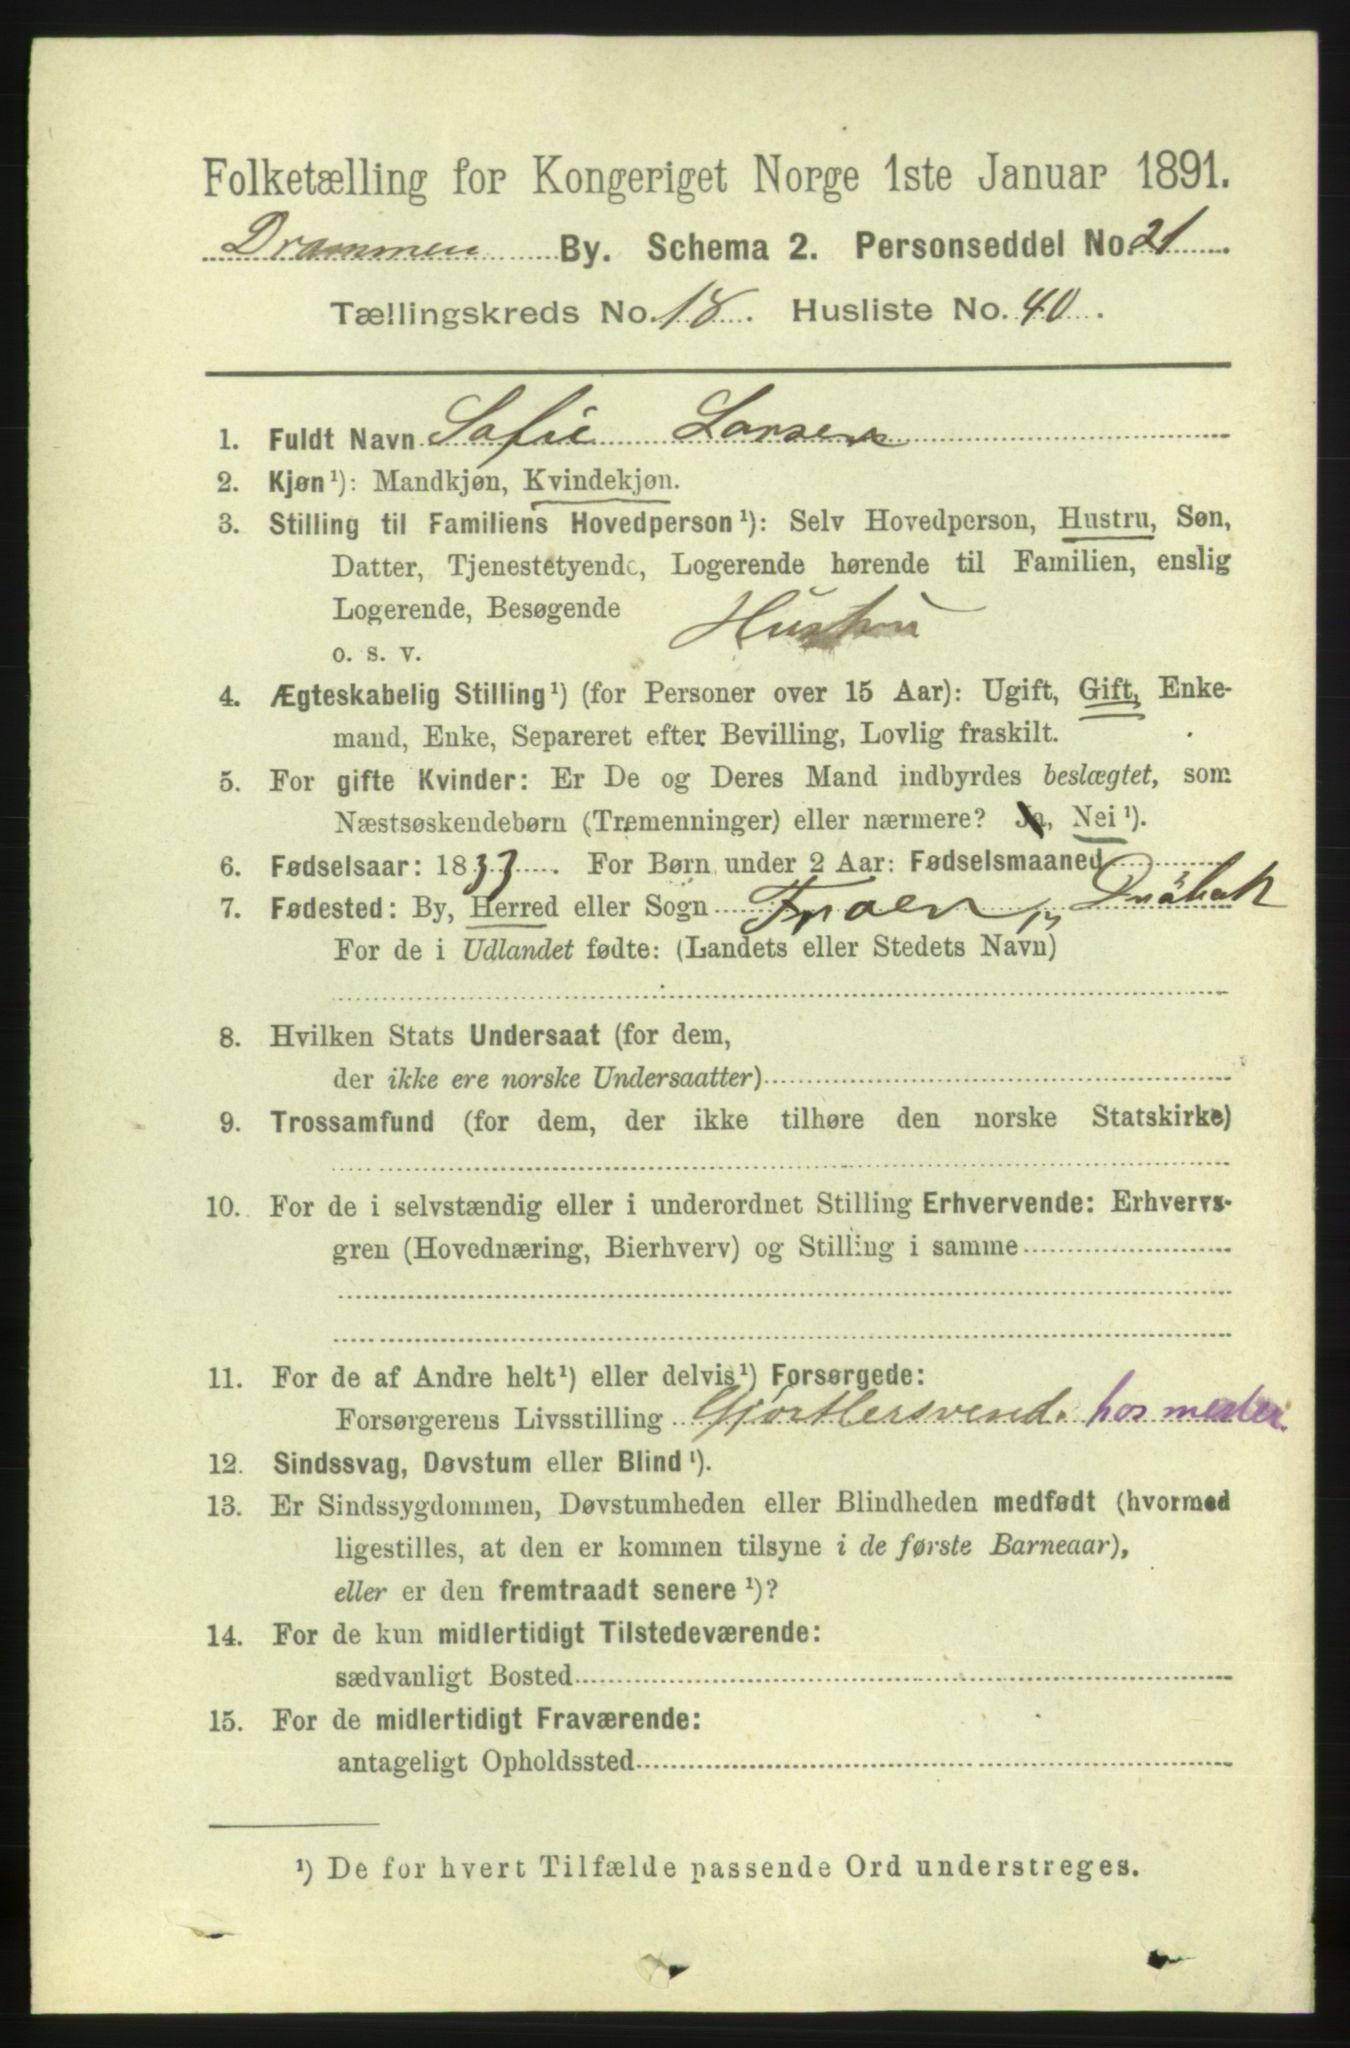 Folketælling for Kongeriget Norge 1ste Januar 1891.
Drammen By. Schema 2. Personseddel No. 21
Tællingskreds No. 18. Husliste No. 40.
1. Fuldt Navn Sofie Larsen
2. Kjøn¹): Mandkjøn, Kvindekjøn.
3. Stilling til Familiens Hovedperson¹): Selv Hovedperson, Hustru, Søn,
Datter, Tjenestetyende, Logerende hørende til Familien, enslig
Logerende, Besøgende Hustru
o. s. v.
4. Ægteskabelig Stilling¹) (for Personer over 15 Aar): Ugift, Gift, Enke-
mand, Enke, Separeret efter Bevilling, Lovlig fraskilt.
5. For gifte Kvinder: Er De og Deres Mand indbyrdes beslægtet, som
Næstsøskendebørn (Tremenninger) eller nærmere? Ja, Nei¹).
6. Fødselsaar: 1833. For Børn under 2 Aar: Fødselsmaaned
7. Fødested: By, Herred eller Sogn Froen, Drøbak
For de i Udlandet fødte: (Landets eller Stedets Navn)
8. Hvilken Stats Undersaat (for dem,
der ikke ere norske Undersaatter)
9. Trossamfund (for dem, der ikke tilhøre den norske Statskirke)
10. For de i selvstændig eller i underordnet Stilling Erhvervende: Erhvervs-
gren (Hovednæring, Bierhverv) og Stilling i samme
11. For de af Andre helt¹) eller delvis¹) Forsørgede:
Forsørgerens Livsstilling Gjørtlersvend. hos mester.
12. Sindssvag, Døvstum eller Blind¹).
13. Er Sindssygdommen, Døvstumheden eller Blindheden medfødt (hvormed
ligestilles, at den er kommen tilsyne i de første Barneaar),
eller er den fremtraadt senere¹)?
14. For de kun midlertidigt Tilstedeværende:
sædvanligt Bosted
15. For de midlertidigt Fraværende:
antageligt Opholdssted
¹) De for hvert Tilfælde passende Ord understreges.